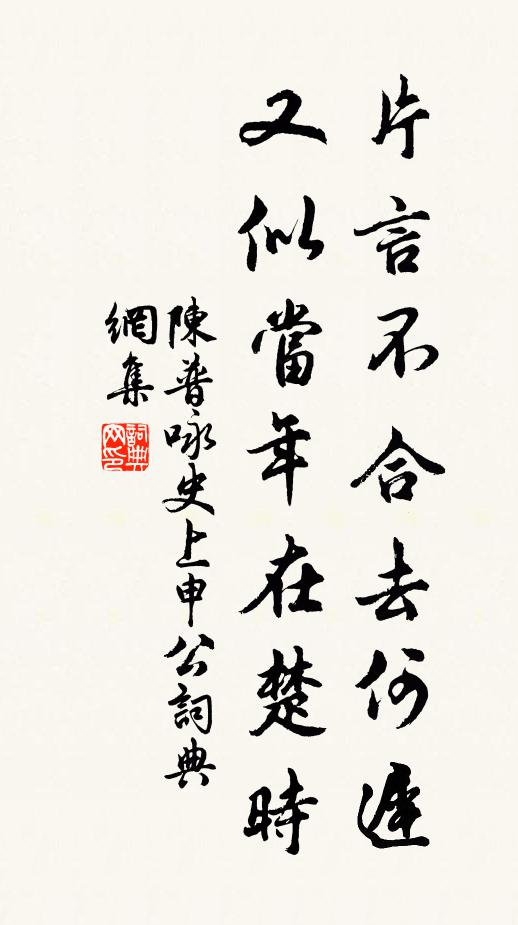 片言不合去何遲
又似當年在楚時
陳普咏史上申公詞典
網集
詞典網印